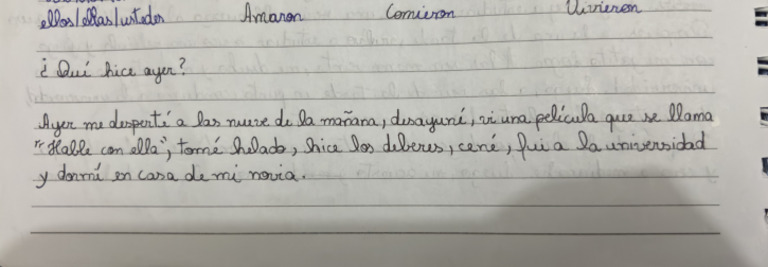 ellos/ellas/ustedes Amaron Comieron Vivieron
¿Qué hice ayer?
Ayer me desperté a las nueve de la mañana, desayuné, vi una película que se llama
"Hable con ella", tomé helado, hice los deberes, cené, fui a la universidad
y dormí en casa de mi novia.